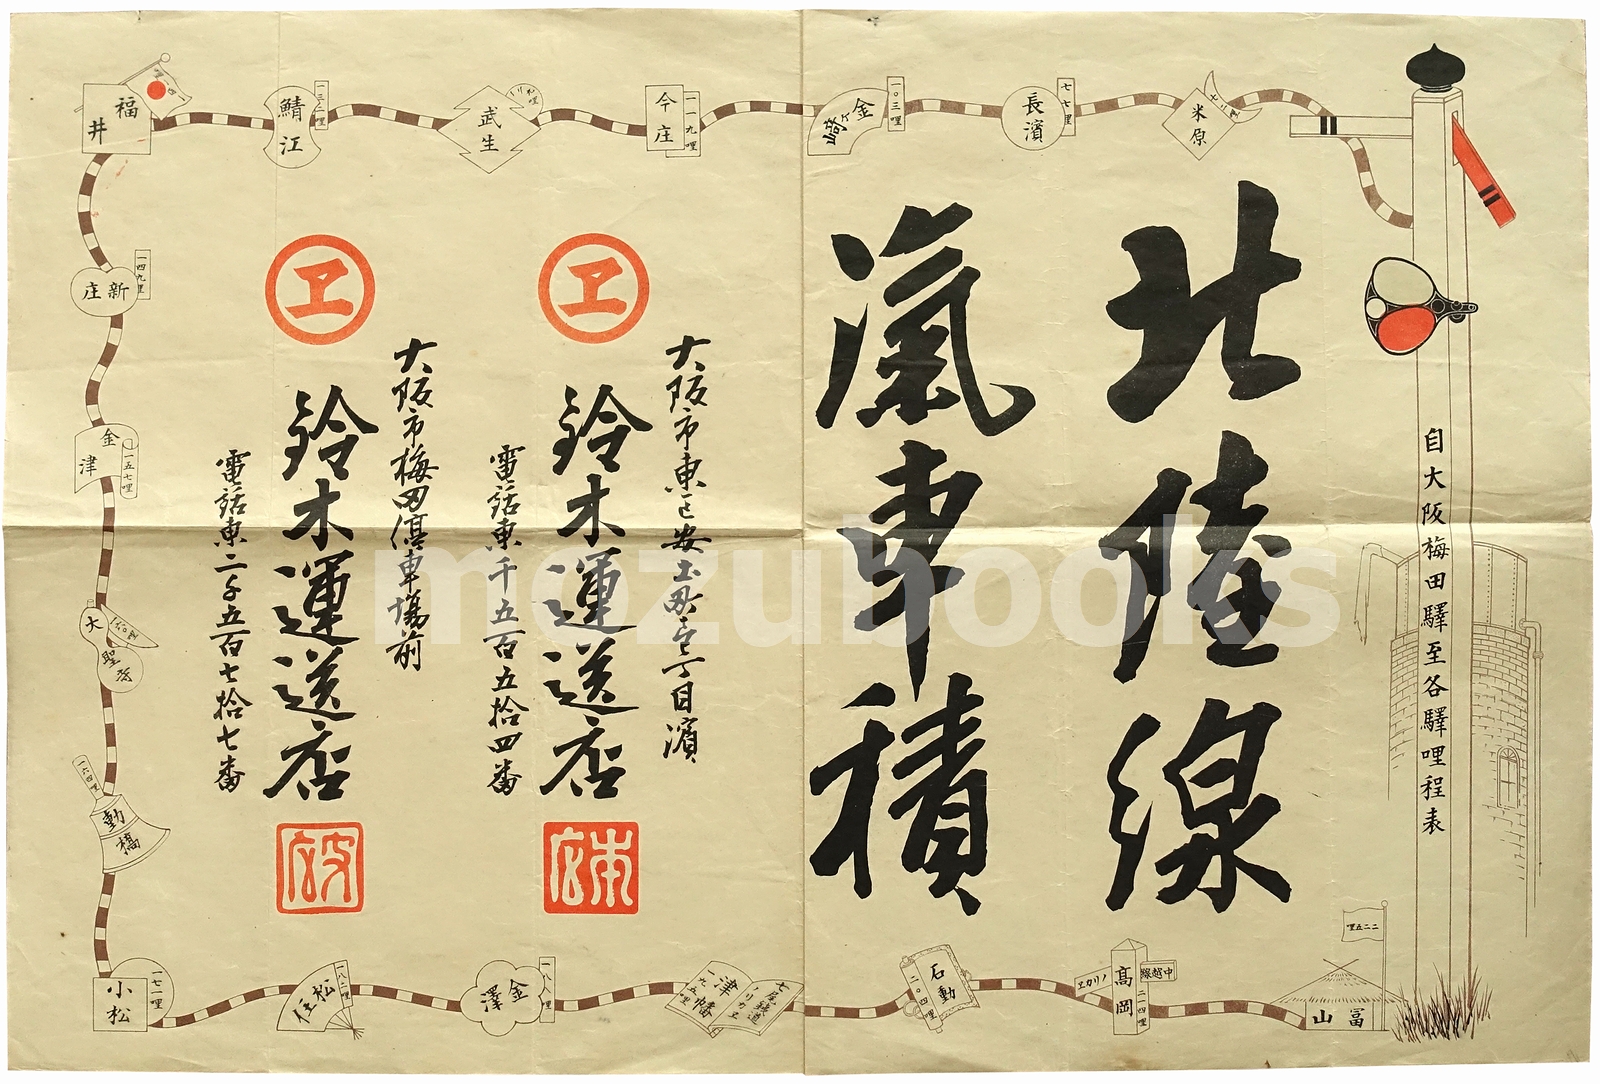 北陸線
滊車積
自大阪梅田驛至各驛哩程表
大阪市東区安土町壱丁目濱
ヱ
鈴木運送店
電話東千五百五拾四番
本店
大阪市梅田停車場前
ヱ
鈴木運送店
電話東二千五百七拾七番
支店
米原
七二哩
長濱
七七哩
金ヶ崎
一〇三哩
今庄
一一九哩
武生
鯖江
一三二哩
福井
新庄
一四九哩
金津
一五七哩
大聖寺
一六〇哩
動橋
一六四哩
小松
一七一哩
松任
一八二哩
金澤
一八八哩
津幡
一九五哩
七尾鉄道
ノリカエ
石動
二〇四哩
高岡
二一四哩
中越線
ノリカヱ
富山
二二五哩
mozubooks